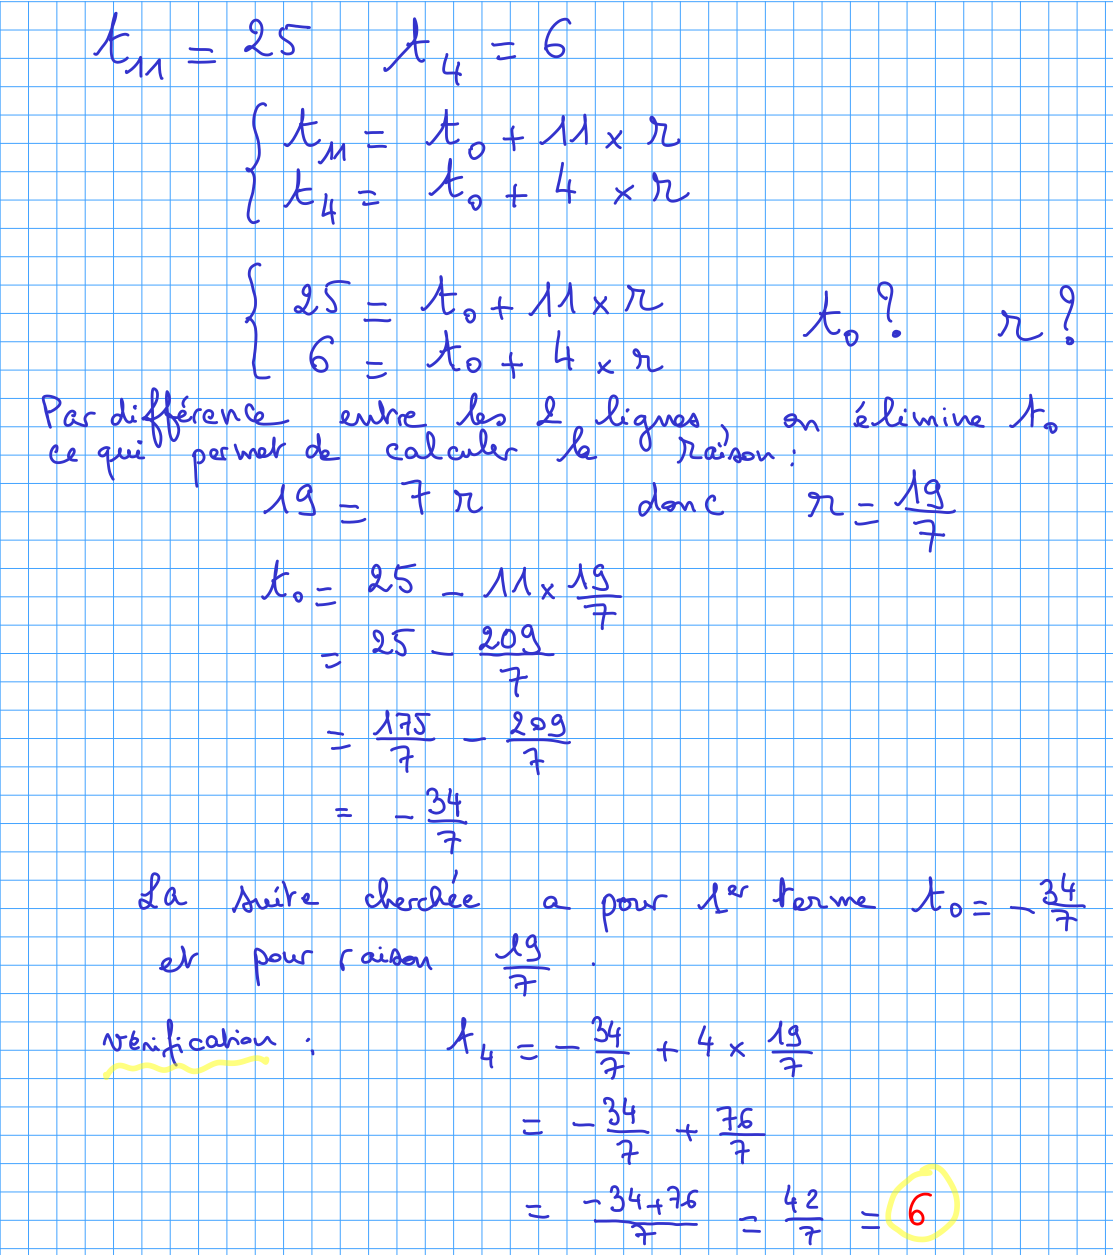 t₁₁ = 25 t₄ = 6
t₁₁ = t₀ + 11 × r
t₄ = t₀ + 4 × r
25 = t₀ + 11 × r t₀ ? r ?
6 = t₀ + 4 × r
Par différence entre les 2 lignes, on élimine t₀
ce qui permet de calculer la raison :
19 = 7 r donc r = 19/7
t₀ = 25 - 11 × 19/7
= 25 - 209/7
= 175/7 - 209/7
= - 34/7
La suite cherchée a pour 1er terme t₀ = - 34/7
et pour raison 19/7 .
vérification :
t₄ = - 34/7 + 4 × 19/7
= - 34/7 + 76/7
= -34+76/7 = 42/7 = 6